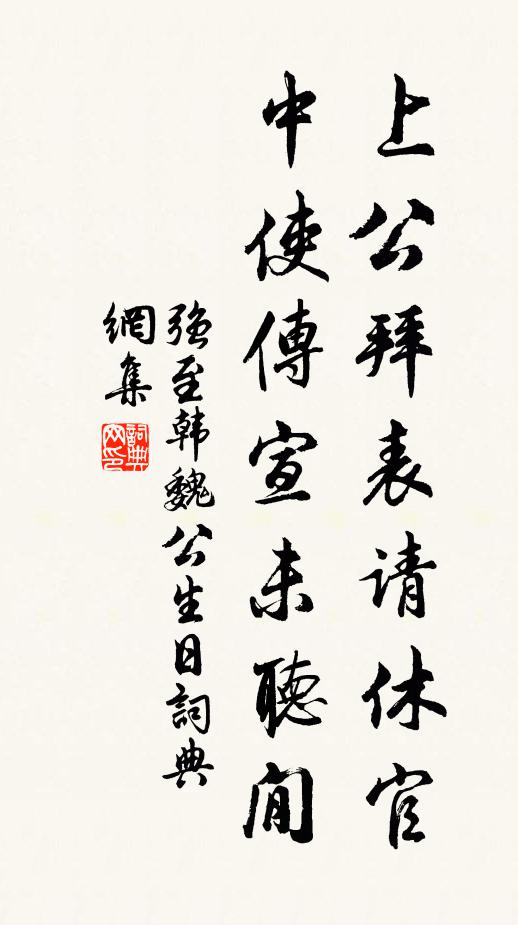 上公拜表请休官
中使傳宣未聽閒
强至韩魏公生日詞典
網集
詞典
网印